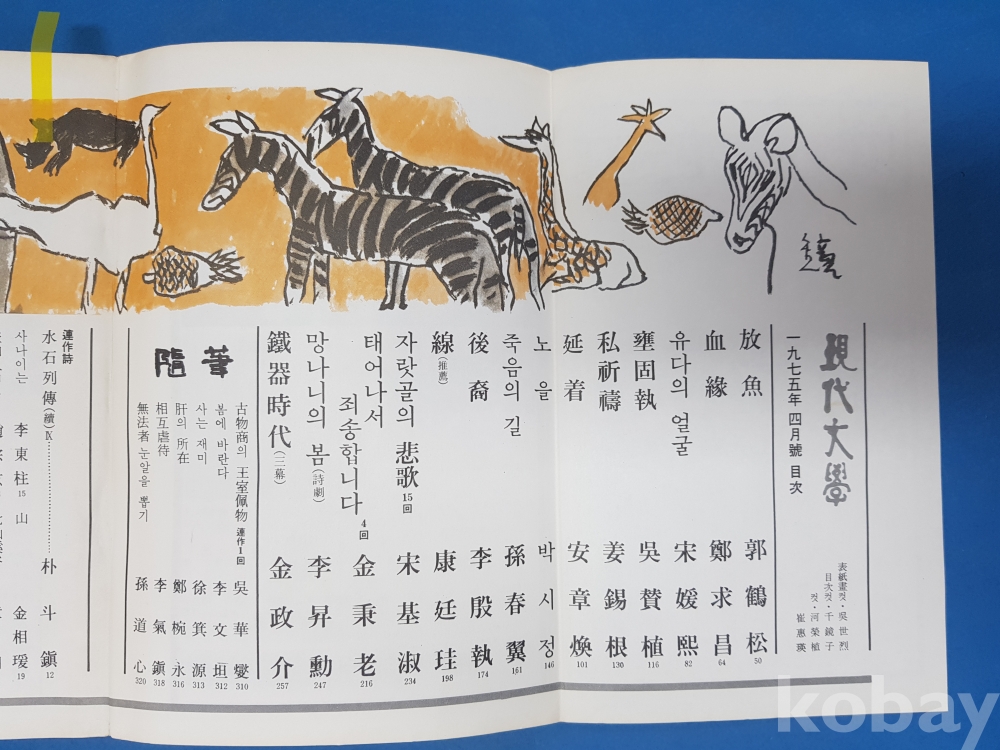 現代文學
一九七五年 四月號 目次
表紙畫컷・吳世烈
目次컷・千鏡子
컷・河榮植
崔惠瑛
放魚 郭鶴松 50
血緣 鄭求昌 64
유다의 얼굴 宋媛熙 82
壅固執 吳贊植 116
私祈禱 姜錫根 130
延着 安章煥 101
노을 박시정 146
죽음의 길 孫春翼 161
後裔 李殷執 174
線(推薦) 康廷珪 198
자랏골의 悲歌 15回 宋基淑 234
태어나서 죄송합니다 4回 金秉老 216
망나니의 봄(詩劇) 李昇勳 247
鐵器時代(三幕) 金政介 257
隨筆
古物商의 王室佩物 連作1回 吳華燮 310
봄에 바란다 李文垣 312
사는 재미 徐箕源 313
肝의 所在 鄭椀永 316
相互虐待 李氣鎭 318
無法者 눈알을 뽑기 孫道心 320
連作詩
水石列傳(續)Ⅸ 朴斗鎭 12
사나이는 李東柱 15
山 金相瑗 19
kobay